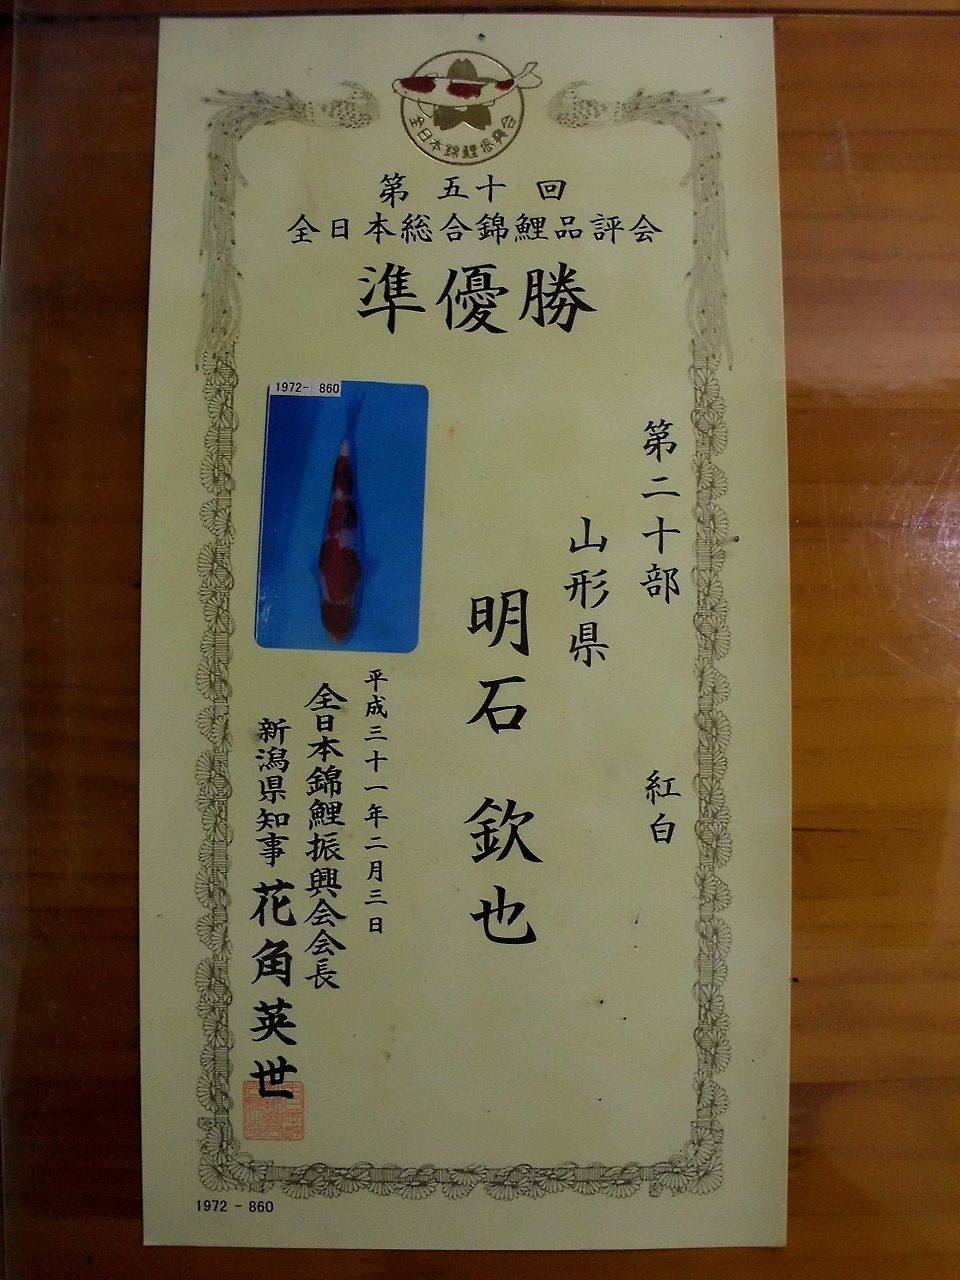 全日本錦鯉振興会
第 五十 回
全日本総合錦鯉品評会
準優勝
1972- 860
第二十部 紅白
山形県
明石 欽也
平成三十一年二月三日
全日本錦鯉振興会会長
新潟県知事 花角英世
1972 - 860